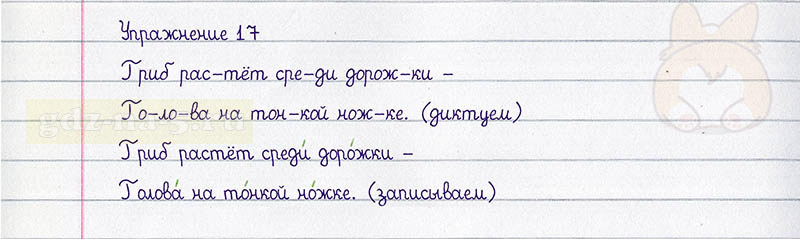 Упражнение 17
Гриб рас-тёт сре-ди дорож-ки -
Го-ло-ва на тон-кой нож-ке. (диктуем)
Гриб растёт среди́ доро́жки -
Голова́ на то́нкой но́жке. (записываем)